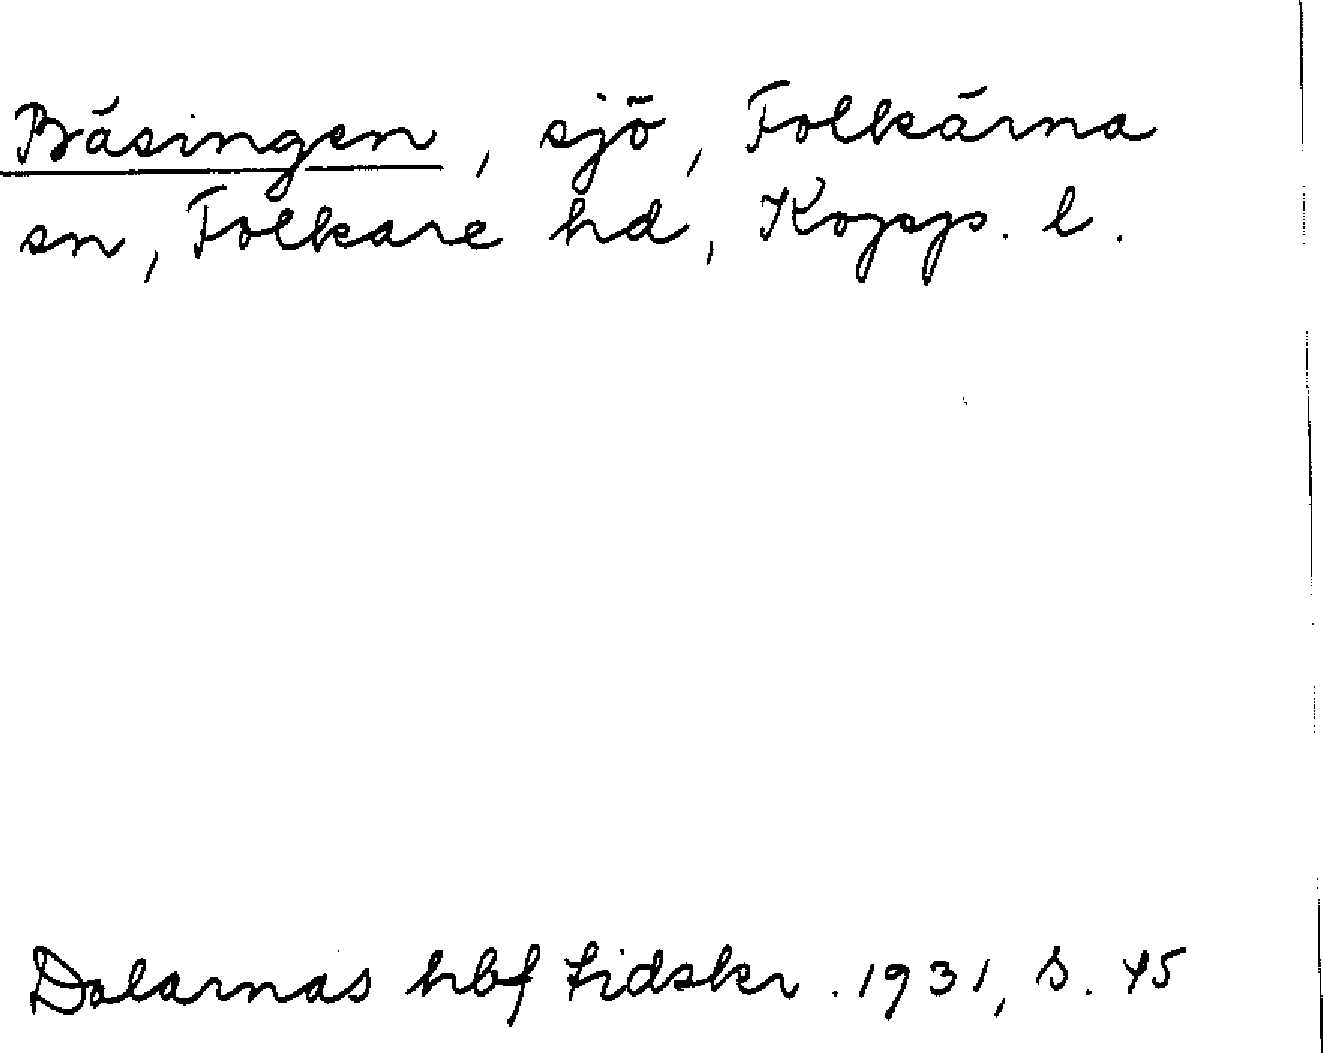 Bäsingen, sjö, Folkärna
sn, Folkare hd, Kopp. l.
Dalarnas hbf tidskr. 1931, s. 45